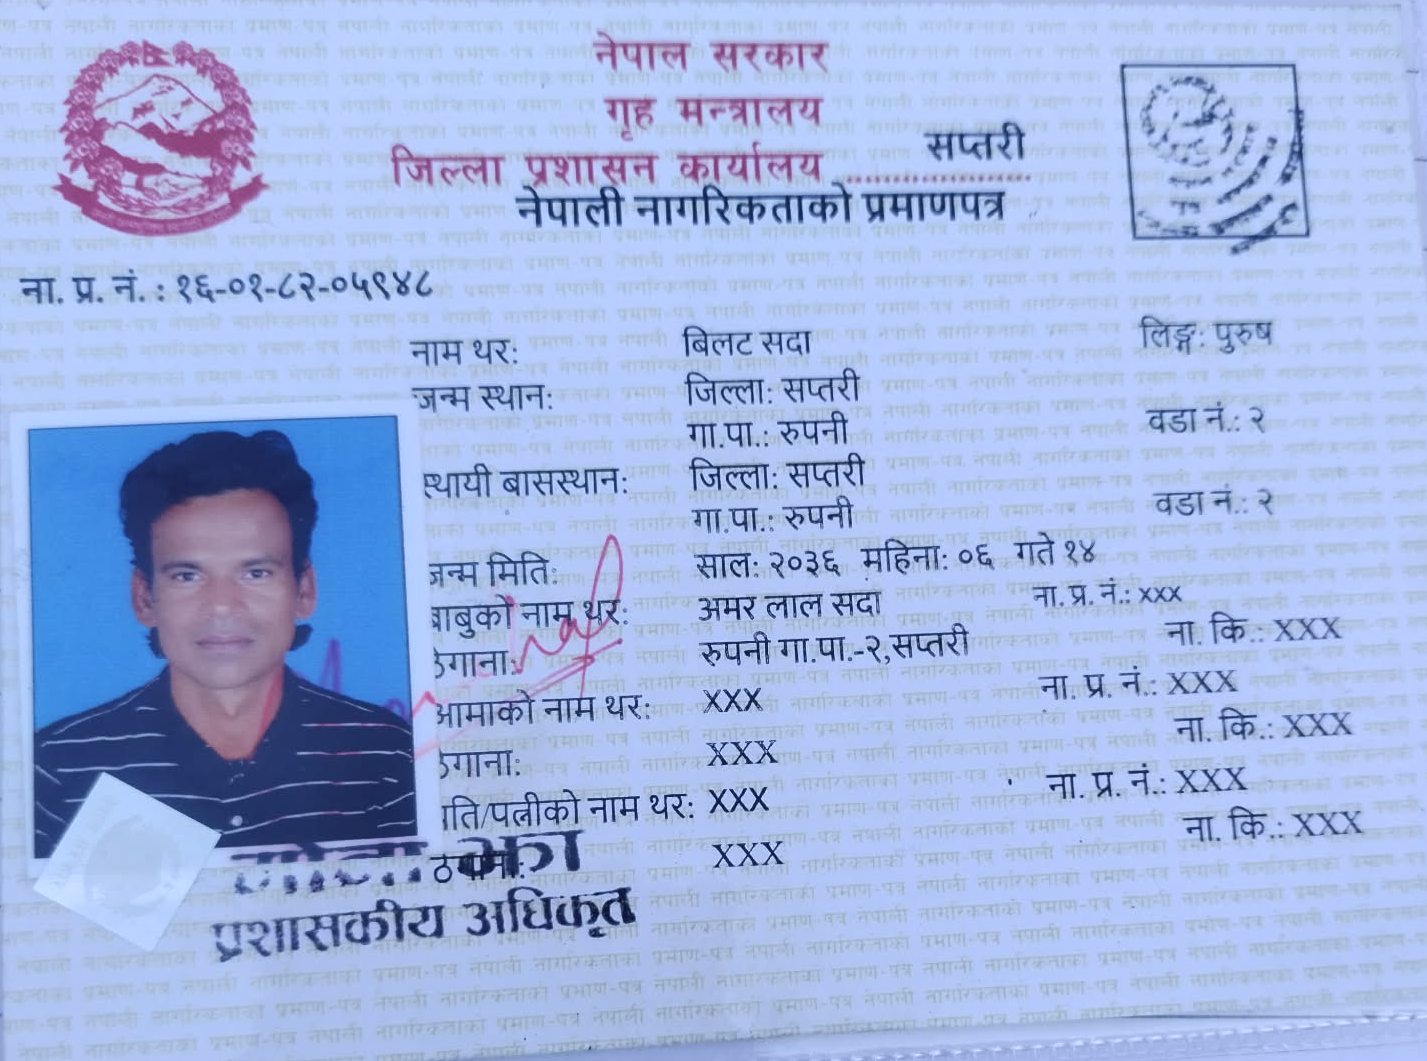 नेपाल सरकार
गृह मन्त्रालय
जिल्ला प्रशासन कार्यालय सप्तरी
नेपाली नागरिकताको प्रमाणपत्र
ना. प्र. नं. : १६-०१-८२-०५९४८
नाम थर: बिलट सदा लिङ्ग: पुरुष
जन्म स्थान: जिल्ला: सप्तरी
गा.पा.: रुपनी वडा नं.: २
स्थायी बासस्थान: जिल्ला: सप्तरी
गा.पा.: रुपनी वडा नं.: २
जन्म मिति: साल: २०३६ महिना: ०६ गते १४
बाबुको नाम थर: अमर लाल सदा ना. प्र. नं.: xxx
ठेगाना: रुपनी गा.पा.-२,सप्तरी ना. कि.: XXX
आमाको नाम थर: XXX ना. प्र. नं.: XXX
ठेगाना: XXX ना. कि.: XXX
पति/पत्नीको नाम थर: XXX ना. प्र. नं.: XXX
XXX ना. कि.: XXX
प्रशासकीय अधिकृत